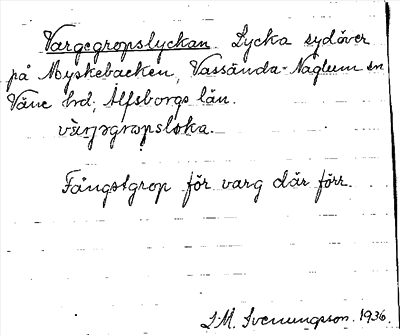 Vargegropslyckan. Lycka sydöver
på Myskebacken, Vassända-Naglum sn
Väne hd, Älfsborgs län.
Fångstgrop för varg där förr.
S.M. Svenungsson. 1936.